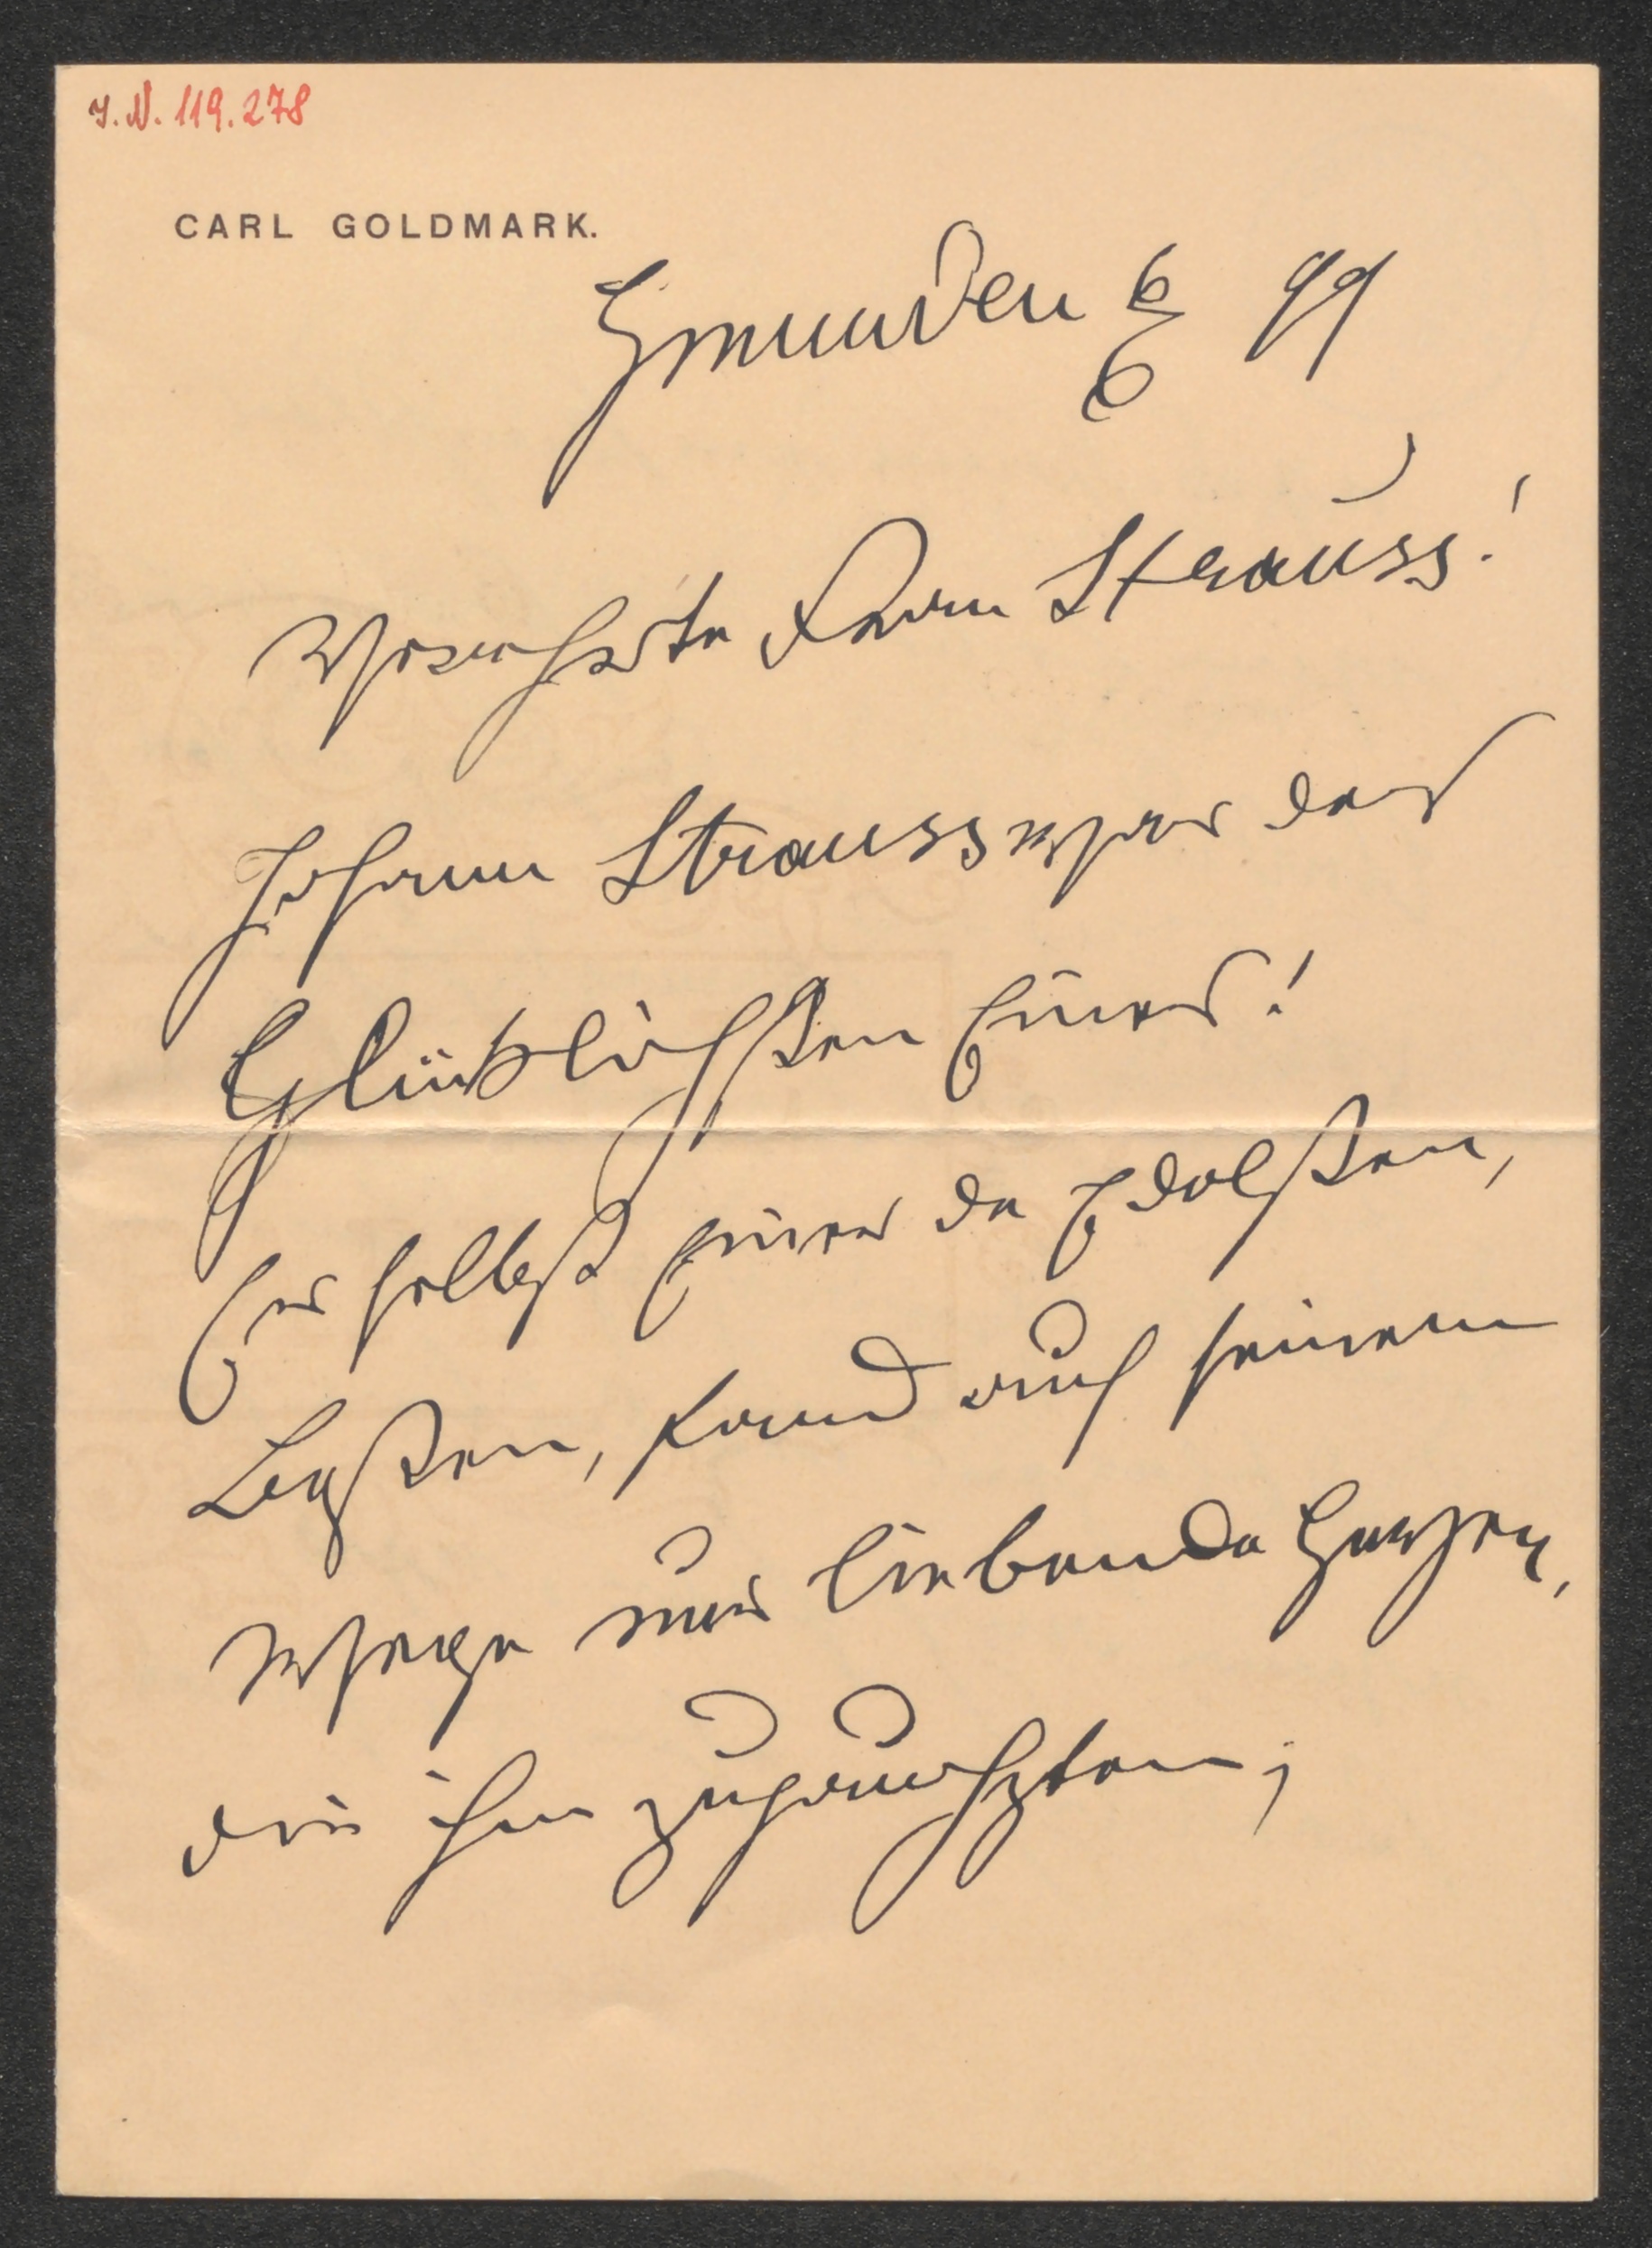 I.N. 119.278
CARL GOLDMARK.
Gmunden 6/6 99
Verehrte Frau Strauss!
Johann Strauss war der
Glücklichsten Einer!
Er selbst einer der Edelsten,
Besten, fand auf seinem
Wege nur liebende Herzen,
die ihm zujauchzten;